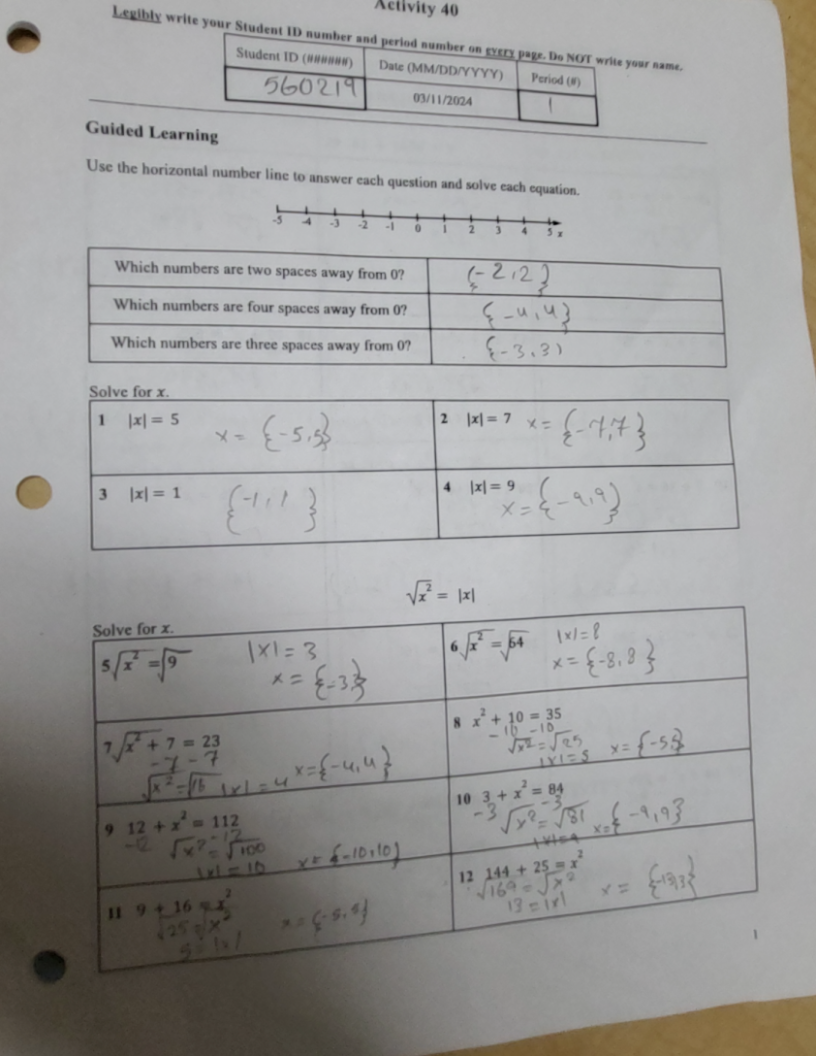 Activity 40
Legibly write your Student ID number and period number on every page. Do NOT write your name.
Student ID (######) Date (MM/DD/YYYY) Period (#)
560219 03/11/2024 1
Guided Learning
Use the horizontal number line to answer each question and solve each equation.
-5 -4 -3 -2 -1 0 1 2 3 4 5 x
Which numbers are two spaces away from 0? {-2,2}
Which numbers are four spaces away from 0? {-4,4}
Which numbers are three spaces away from 0? {-3,3}
Solve for x.
1 |x| = 5 x = {-5,5}
2 |x| = 7 x = {-7,7}
3 |x| = 1 {-1,1}
4 |x| = 9 x = {-9,9}
√x² = |x|
Solve for x.
5 √x² = √9 |x| = 3
x = {-3,3}
6 √x² = √64 |x| = 8
x = {-8,8}
7 √x² + 7 = 23
-7 -7
√x² = √16 |x| = 4 x = {-4,4}
8 x² + 10 = 35
-10 -10
√x² = √25 x = {-5,5}
|x| = 5
9 12 + x² = 112
-12 -12
√x² = √100
|x| = 10 x = {-10,10}
10 3 + x² = 84
-3 -3
√x² = √81 x = {-9,9}
|x| = 9
11 9 + 16 = x²
√25 = √x² x = {-5,5}
5 = |x|
12 144 + 25 = x²
√169 = √x² x = {-13,13}
13 = |x|
1